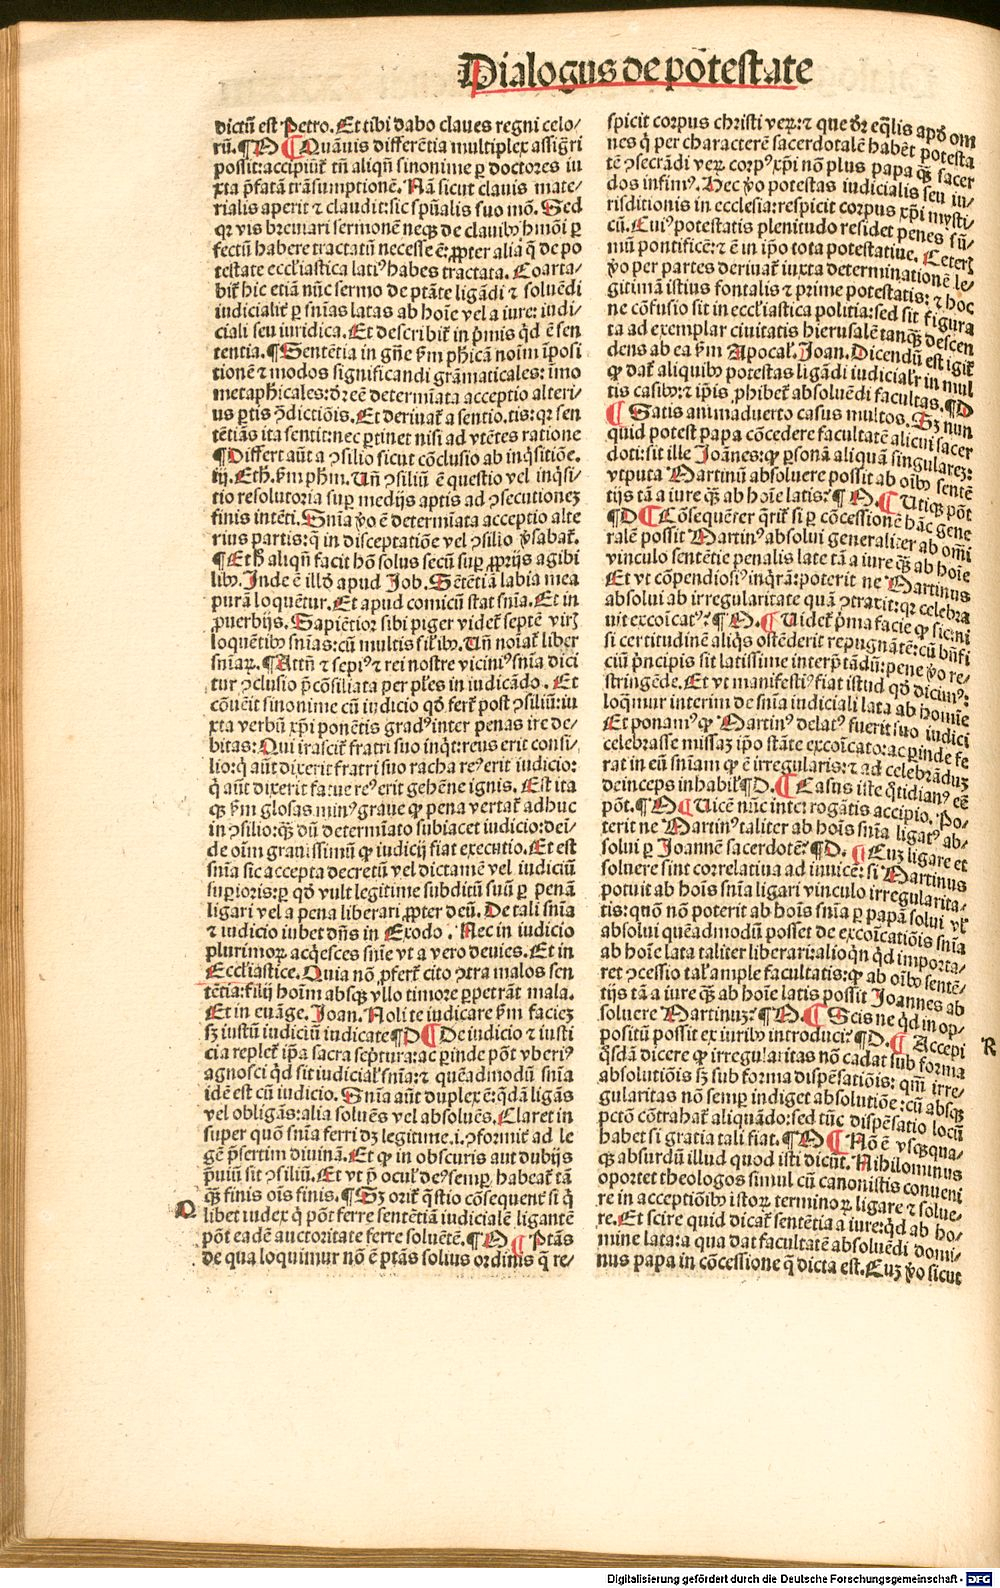 Dialogus de põtestate
dictũ est Petro. Et tibi dabo claues regni celo/
rũ. ¶ M Quãuis differẽtia multiplex assigri
possit: accipiũt᷑ tñ aliqñ sinonime ꝑ doctores iu
xta p̃fatã trãsumptionẽ. Nã sicut clauis mate-
rialis aperit ⁊ claudit: sic spũalis suo mõ. Sed
qꝛ vis breuiari sermonẽ neqꝫ de clauibꝰ hmõi ꝑ
fectũ habere tractatũ necesse ẽ: ꝓpter alia q̃ de po
testate eccl̃iastica latiꝰ habes tractata. Coarta-
bit᷑ hic etiã nũc sermo de ptãte ligãdi ⁊ soluẽdi
iudicialit᷑ ꝑ sñias latas ab hoĩe vel a iure: iudi/
ciali seu iuridica. Et describit᷑ in p̃mis qd ẽ sen
tentia. ¶ Sentẽtia in gñe ẞm pħicã noĩm ĩposi
tionẽ ⁊ modos significandi grãmaticales: ĩmo
metaphicales: dr̃ eẽ determĩata acceptio alteri-
us ꝑtis ꝯdictiõis. Et deriuat᷑ a sentio. tis: qꝛ sen
tẽtiãs ita sentit: nec ꝑtinet nisi ad vtẽtes ratione
¶ Differt aũt a ꝯsilio sicut cõclusio ab inq̃sitiõe.
iij. Eth. ẞm pħm. Uñ ꝯsiliũ ẽ questio vel inq̃si-
tio resolutoria suꝑ medijs aptis ad ꝯsecutionez
finis intẽti. Snĩa ṽo ẽ determĩata acceptio alte
rius partis: q̃ in disceptatiõe vel ꝯsilio ṽsabat᷑.
¶ Et ħ aliqñ facit hõ solus secũ suꝑ ꝓprijs agibi
libꝰ. Inde ẽ illð apud Job. Sẽtẽtiã labia mea
purã loquẽtur. Et apud comicũ stat snĩa. Et in
ꝓuerbijs. Sapiẽtior sibi piger videt᷑ septẽ viri
loquẽtibꝰ snĩas: cũ multis sil̃ibꝰ. Uñ noĩat᷑ liber
snĩaꝝ. ¶ Attñ ⁊ sepiꝰ ⁊ rei nostre viciniꝰ snĩa dici
tur ꝯclusio p̃cõsiliata per pl̃es in iudicãdo. Et
cõuẽit sinonime cũ iudicio qð fert᷑ post ꝯsiliũ: iu
xta verbũ xp̃i ponẽtis gradꝰ inter penas ire de-
bitas: Qui irascit᷑ fratri suo inq̃t: reus erit consi-
lio: q̃ aũt dixerit fratri suo racha reꝰ erit iudicio:
q̃ aũt dixerit fatue reꝰ erit gehẽne ignis. Est ita
qꝫ ẞm glosas minꝰ graue ꝙ pena vertat᷑ adhuc
in ꝯsilio: qꝫ dũ determĩato subiacet iudicio: dei-
de oĩm grauissimũ ꝙ iudicij fiat executio. Et est
snĩa sic accepta decretũ vel dictamẽ vel iudiciũ
suꝑioris: ꝑ qð vult legitime subditũ suũ ꝑ penã
ligari vel a pena liberari ꝓpter deũ. De tali snĩa
⁊ iudicio iubet dñs in Exodo. Nec in iudicio
plurimoꝝ acq̃esces snĩe vt a vero deuies. Et in
Eccl̃iastice. Quia nõ ꝓfert᷑ cito ꝯtra malos sen
tẽtia: filij hoĩm absqꝫ vllo timore ꝑpetrãt mala.
Et in euãge. Joan. Noli te iudicare ẞm faciez
sꝫ iustũ iudiciũ iudicate ¶ D De iudicio ⁊ iusti
cia replet᷑ ip̃a sacra scp̃tura: ac ꝑinde põt vberiꝰ
agnosci qd sit iudicial᷑ snĩa: ⁊ quẽadmodũ snĩa
idẽ est cũ iudicio. Snĩa aũt duplex ẽ: qdã ligãs
vel obligãs: alia soluẽs vel absoluẽs. Claret in
super quõ snĩa ferri dꝫ legitime. i. ꝯformit᷑ ad le
gẽ p̃sertim diuinã. Et ꝙ in obscuris aut dubijs
p̃uiũ sit ꝯsiliũ. Et vt p̃ ocul᷑ deꝰ semꝑ habeat᷑ tã
qꝫ finis oĩs finis. ¶ Sꝫ orit᷑ q̃stio cõsequent᷑ si q̃
libet iudex q̃ põt ferre sentẽtiã iudicialẽ ligantẽ
põt eadẽ auctoritate ferre soluẽtẽ. ¶ M Ptãs
de qua loquimur nõ ẽ ptãs solius ordinis q̃ re/
Q
spicit corpus christi veꝝ: ⁊ que dr̃ eq̃lis apð om
nes q̃ per characterẽ sacerdotalẽ habẽt potesta
tẽ ꝯsecrãdi veꝝ corpꝰ xp̃i nõ plus papa qꝫ sacer
dos infimꝰ. Hec ṽo potestas iudicialis seu iu-
risditionis in ecclesia: respicit corpus xp̃i mysti
cũ. Cuiꝰ potestatis plenitudo residet penes sũ-
mũ pontificẽ: ⁊ ẽ in ip̃o tota potestatiue. Ceterꝫ
ṽo per partes deriuat᷑ iuxta determinationẽ le-
gitimã istius fontalis ⁊ prime potestatis: ⁊ hoc
ne cõfusio sit in eccl̃iastica politia: sed sit figura
ta ad exemplar ciuitatis hierusalẽ tanqꝫ descen
dens ab ea ẞm Apocal᷑. Joan. Dicendũ est igit᷑
ꝙ dat᷑ aliquibꝰ potestas ligãdi iudicial᷑r in mul
tis casibꝰ: ⁊ ip̃is ꝓhibet᷑ absoluẽdi facultas. ¶ D
Satis animaduerto casus multos. Sꝫ nun
quid potest papa cõcedere facultatẽ alicui sacer
doti: sit ille Joãnes: ꝙ ꝑsonã aliquã singularez:
vtputa Martinũ absoluere possit ab oĩbꝰ sentẽ
tijs tã a iure qꝫ ab hoĩe latis? ¶ M. Utiqꝫ põt
¶ D Cõsequẽter q̃rit᷑ si ꝑ cõcessionẽ hãc gene
ralẽ possit Martinꝰ absolui generaliter ab om̃i
vinculo sentẽtie penalis late tã a iure qꝫ ab hoĩe
Et vt cõpendiosiꝰ inq̃rã: poterit ne Martinus
absolui ab irregularitate quã ꝯtraxit: qꝛ celebra
uit excõicatꝰ? ¶ M. Uidet᷑ p̃ma facie ꝙ sic: ni
si certitudinẽ aliq̃s ostẽderit repugnãtẽ: cũ bñfi
ciũ p̃ncipis sit latissime interp̃tãdũ: pene ṽo re-
stringẽde. Et vt manifestiꝰ fiat istud qð dicimꝰ:
loq̃mur interim de snĩa iudiciali lata ab homĩe
Et ponamꝰ ꝙ Martinꝰ delatꝰ fuerit suo iudici
celebrasse missaꝫ ip̃o stãte excoĩcato: ac ꝑinde fe
rat in eũ snĩam ꝙ ẽ irregularis: ⁊ ad celebrãduꝫ
deinceps inhabil᷑ ¶ D. Casus iste q̃tidianꝰ eẽ
põt. ¶ M Uicẽ nũc interrogãtis accipio. Po-
terit ne Martinꝰ taliter ab hoĩs snĩa ligatꝰ ab-
solui ꝑ Joannẽ sacerdotẽ? ¶ D. Cuꝫ ligare et
soluere sint correlatiua ad inuicẽ: si Martinus
potuit ab hoĩs snĩa ligari vinculo irregularita-
tis: quõ nõ poterit ab hoĩs snĩa ꝑ papã solui vl᷑
absolui quẽadmodũ posset de excoĩcatiõis snĩa
ab hoĩe lata taliter liberari: alioq̃n qd importa-
ret ꝯcessio tal᷑ ample facultatis: ꝙ ab oĩbꝰ sentẽ-
tijs tã a iure qꝫ ab hoĩe latis possit Joannes ab
soluere Martinuꝫ? ¶ M. Scis ne qd in op-
positũ possit ex iuribꝰ introduci? ¶ D. Accepi
qsdã dicere ꝙ irregularitas nõ cadat sub forma
absolutiõis sꝫ sub forma dispẽsatiõis: qm̃ irre-
gularitas nõ semꝑ indiget absolutiõe: cũ absqꝫ
pctõ cõtrahat᷑ aliquãdo: sed tũc dispẽsatio locũ
habet si gratia tali fiat. ¶ M Nõ ẽ vsqꝫqua-
qꝫ absurdũ illud quod isti dicũt. Nihilominus
oportet theologos simul cũ canonistis conueni
re in acceptiõibꝰ istoꝝ terminoꝝ ligare ⁊ solue-
re. Et scire quid dicat᷑ sentẽtia a iure: qd ab ho-
mine lata: a qua dat facultatẽ absoluẽdi domi-
nus papa in cõcessione q̃ dicta est. Cuꝫ ṽo sicut
R
Digitalisierung gefördert durch die Deutsche Forschungsgemeinschaft - DFG